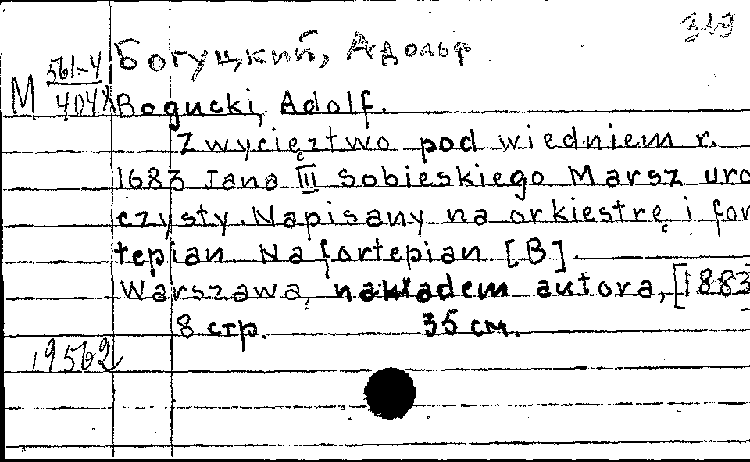 319
Богуцкий, Адольф
М 561-4/404
Bogucki, Adolf.
Zwycięztwo pod wiedniem r.
1683 Jana III Sobieskiego Marsz uro
czysty. Napisany na orkiestrę i for
tepian Na fortepian [B].
Warszawa, nakładem autora, [1883
8 стр. 35 см.
19562